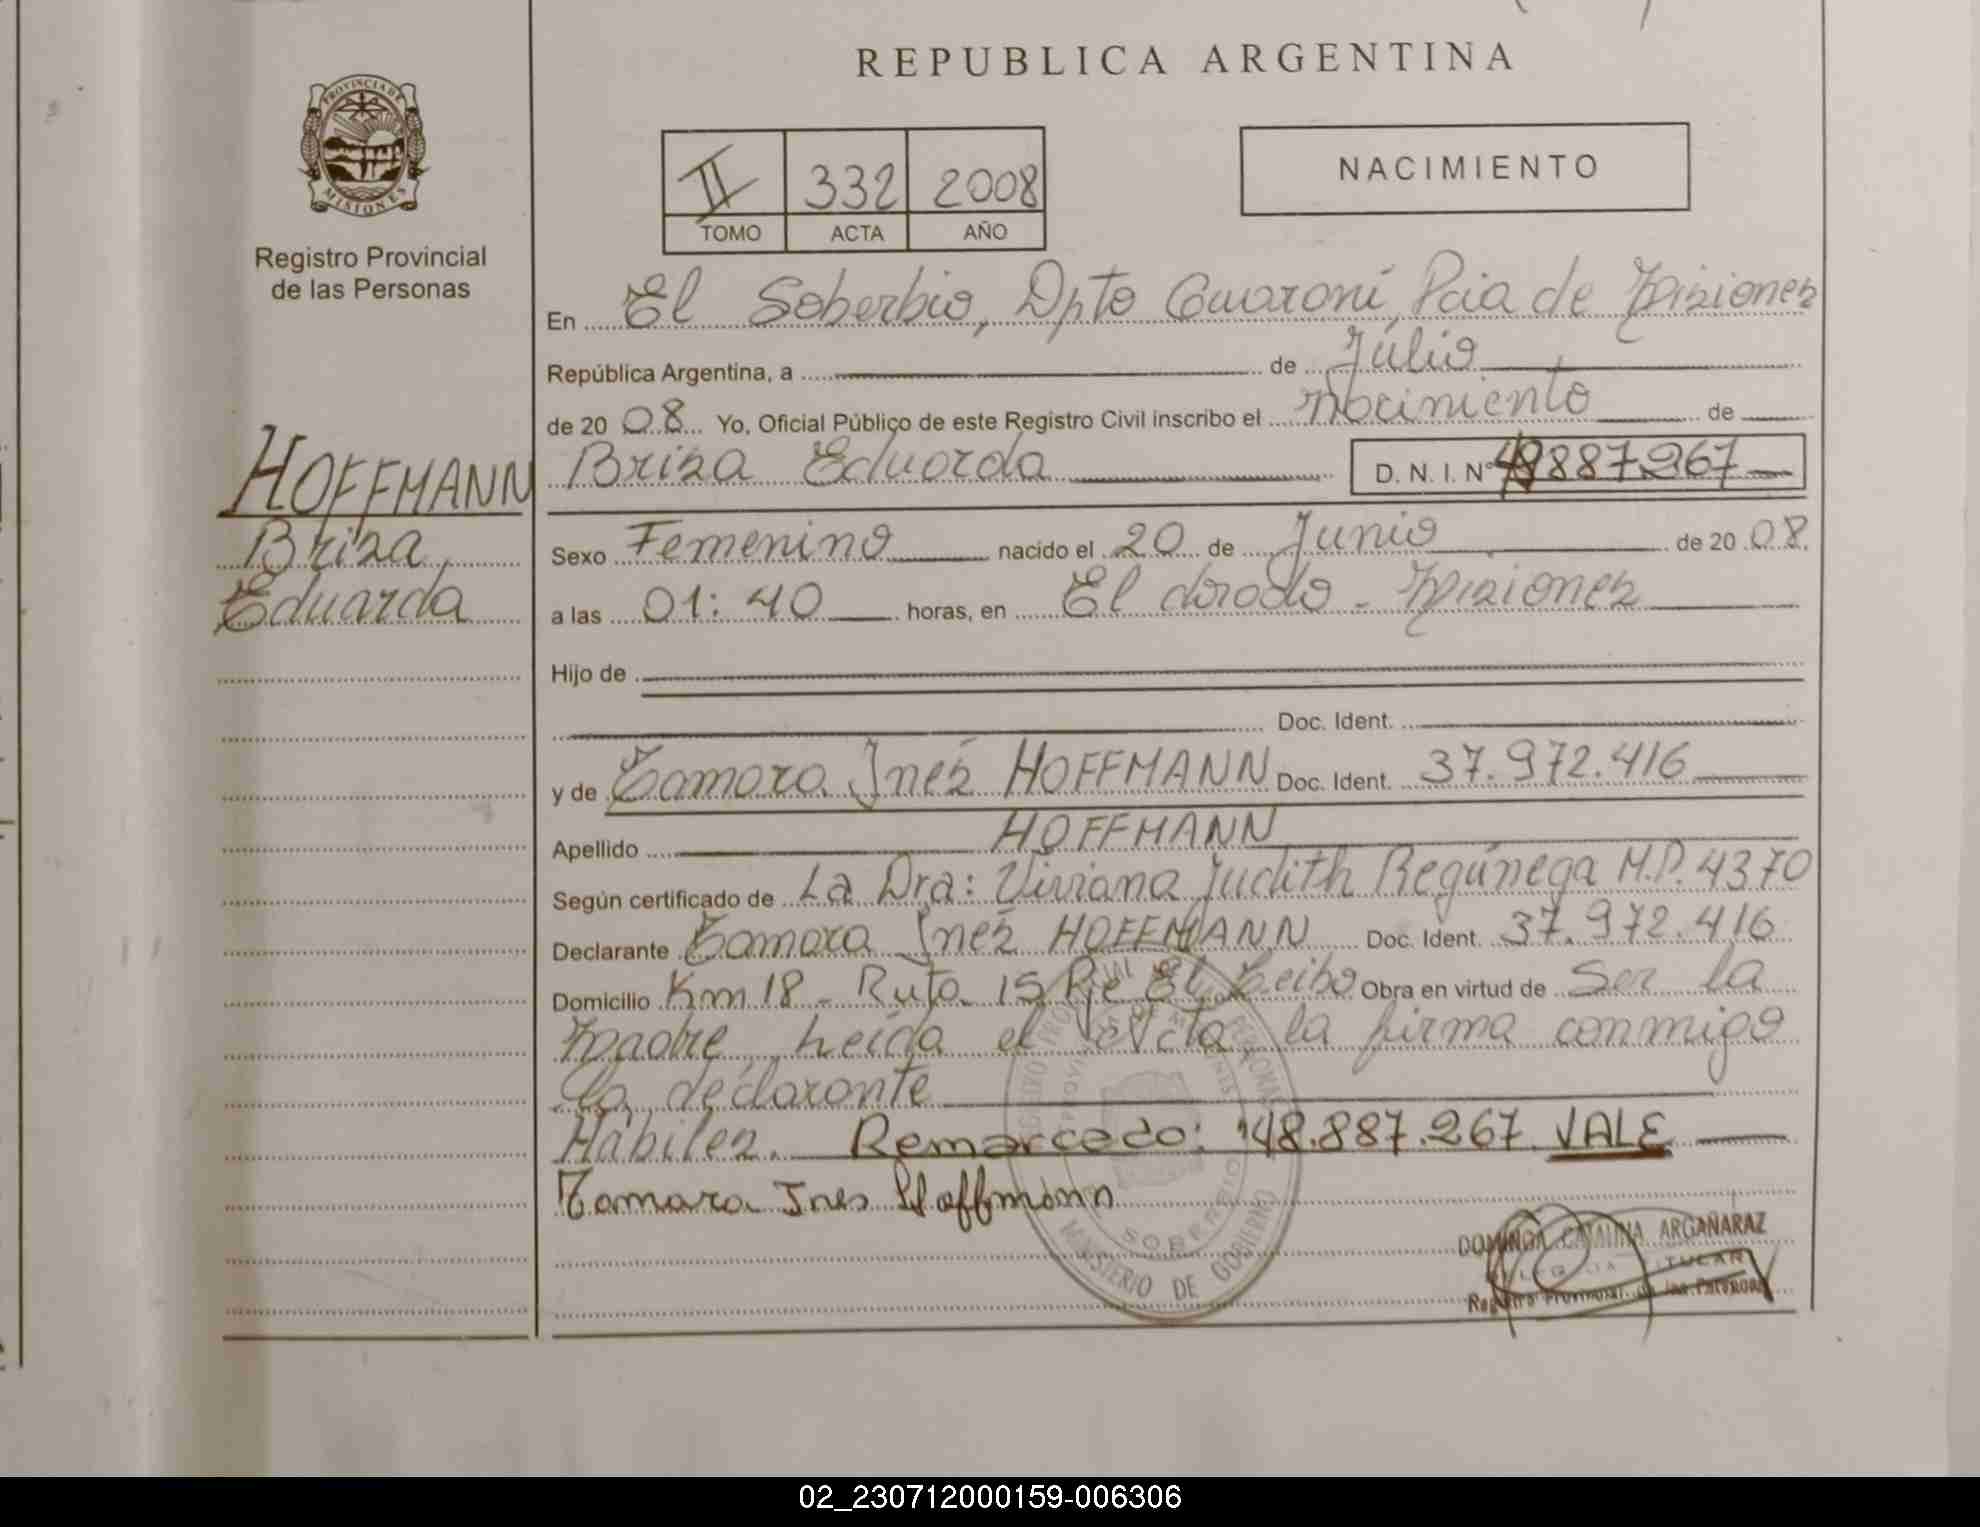 REPUBLICA ARGENTINA
PROVINCIA DE
MISIONES
Registro Provincial
de las Personas
II 332 2008
TOMO ACTA AÑO
NACIMIENTO
En El Soberbio, Dpto Guaraní, Pcia de Misiones
República Argentina, a de Júlio
de 20 08 Yo, Oficial Público de este Registro Civil inscribo el Nacimiento de
Briza Eduarda D.N.I. Nº 48887267
HOFFMANN
Briza,
Eduarda
Sexo Femenino nacido el 20 de Junio de 20 08
a las 01:40 horas, en El dorado - Misiones
Hijo de
Doc. Ident.
y de Tamara Inés HOFFMANN Doc. Ident. 37.972.416
Apellido HOFFMANN
Según certificado de La Dra: Viviana Judith Regúnega M.P. 4370
Declarante Tamara Inés HOFFMANN Doc. Ident. 37.972.416
Domicilio Km 18 - Ruta 15 Pje El Ceibo Obra en virtud de Ser la
Madre, Leída el Acta, la firma conmigo
la declarante
Hábiles. Remarcado: 48.887.267 VALE
Tamara Ines Hoffmann
SOBERBIO
MINISTERIO DE GOBIERNO
DOMINGA CATALINA ARGAÑARAZ
TITULAR
Registro Provincial de las Personas
02_230712000159-006306